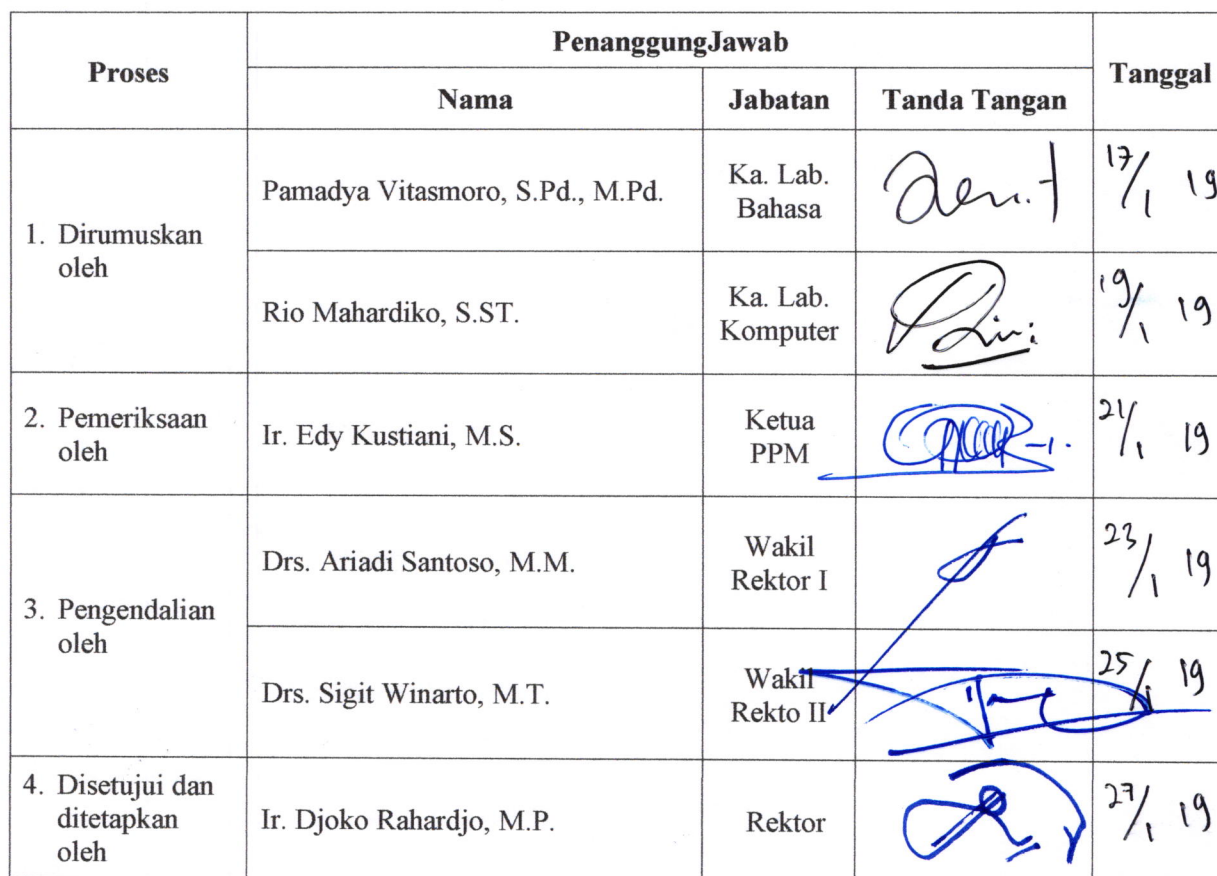 Proses
PenanggungJawab
Tanggal
Nama
Jabatan
Tanda Tangan
1. Dirumuskan
oleh
Pamadya Vitasmoro, S.Pd., M.Pd.
Ka. Lab.
Bahasa
17/1 19
Rio Mahardiko, S.ST.
Ka. Lab.
Komputer
19/1 19
2. Pemeriksaan
oleh
Ir. Edy Kustiani, M.S.
Ketua
PPM
21/1 19
3. Pengendalian
oleh
Drs. Ariadi Santoso, M.M.
Wakil
Rektor I
23/1 19
Drs. Sigit Winarto, M.T.
Wakil
Rekto II
25/1 19
4. Disetujui dan
ditetapkan
oleh
Ir. Djoko Rahardjo, M.P.
Rektor
27/1 19